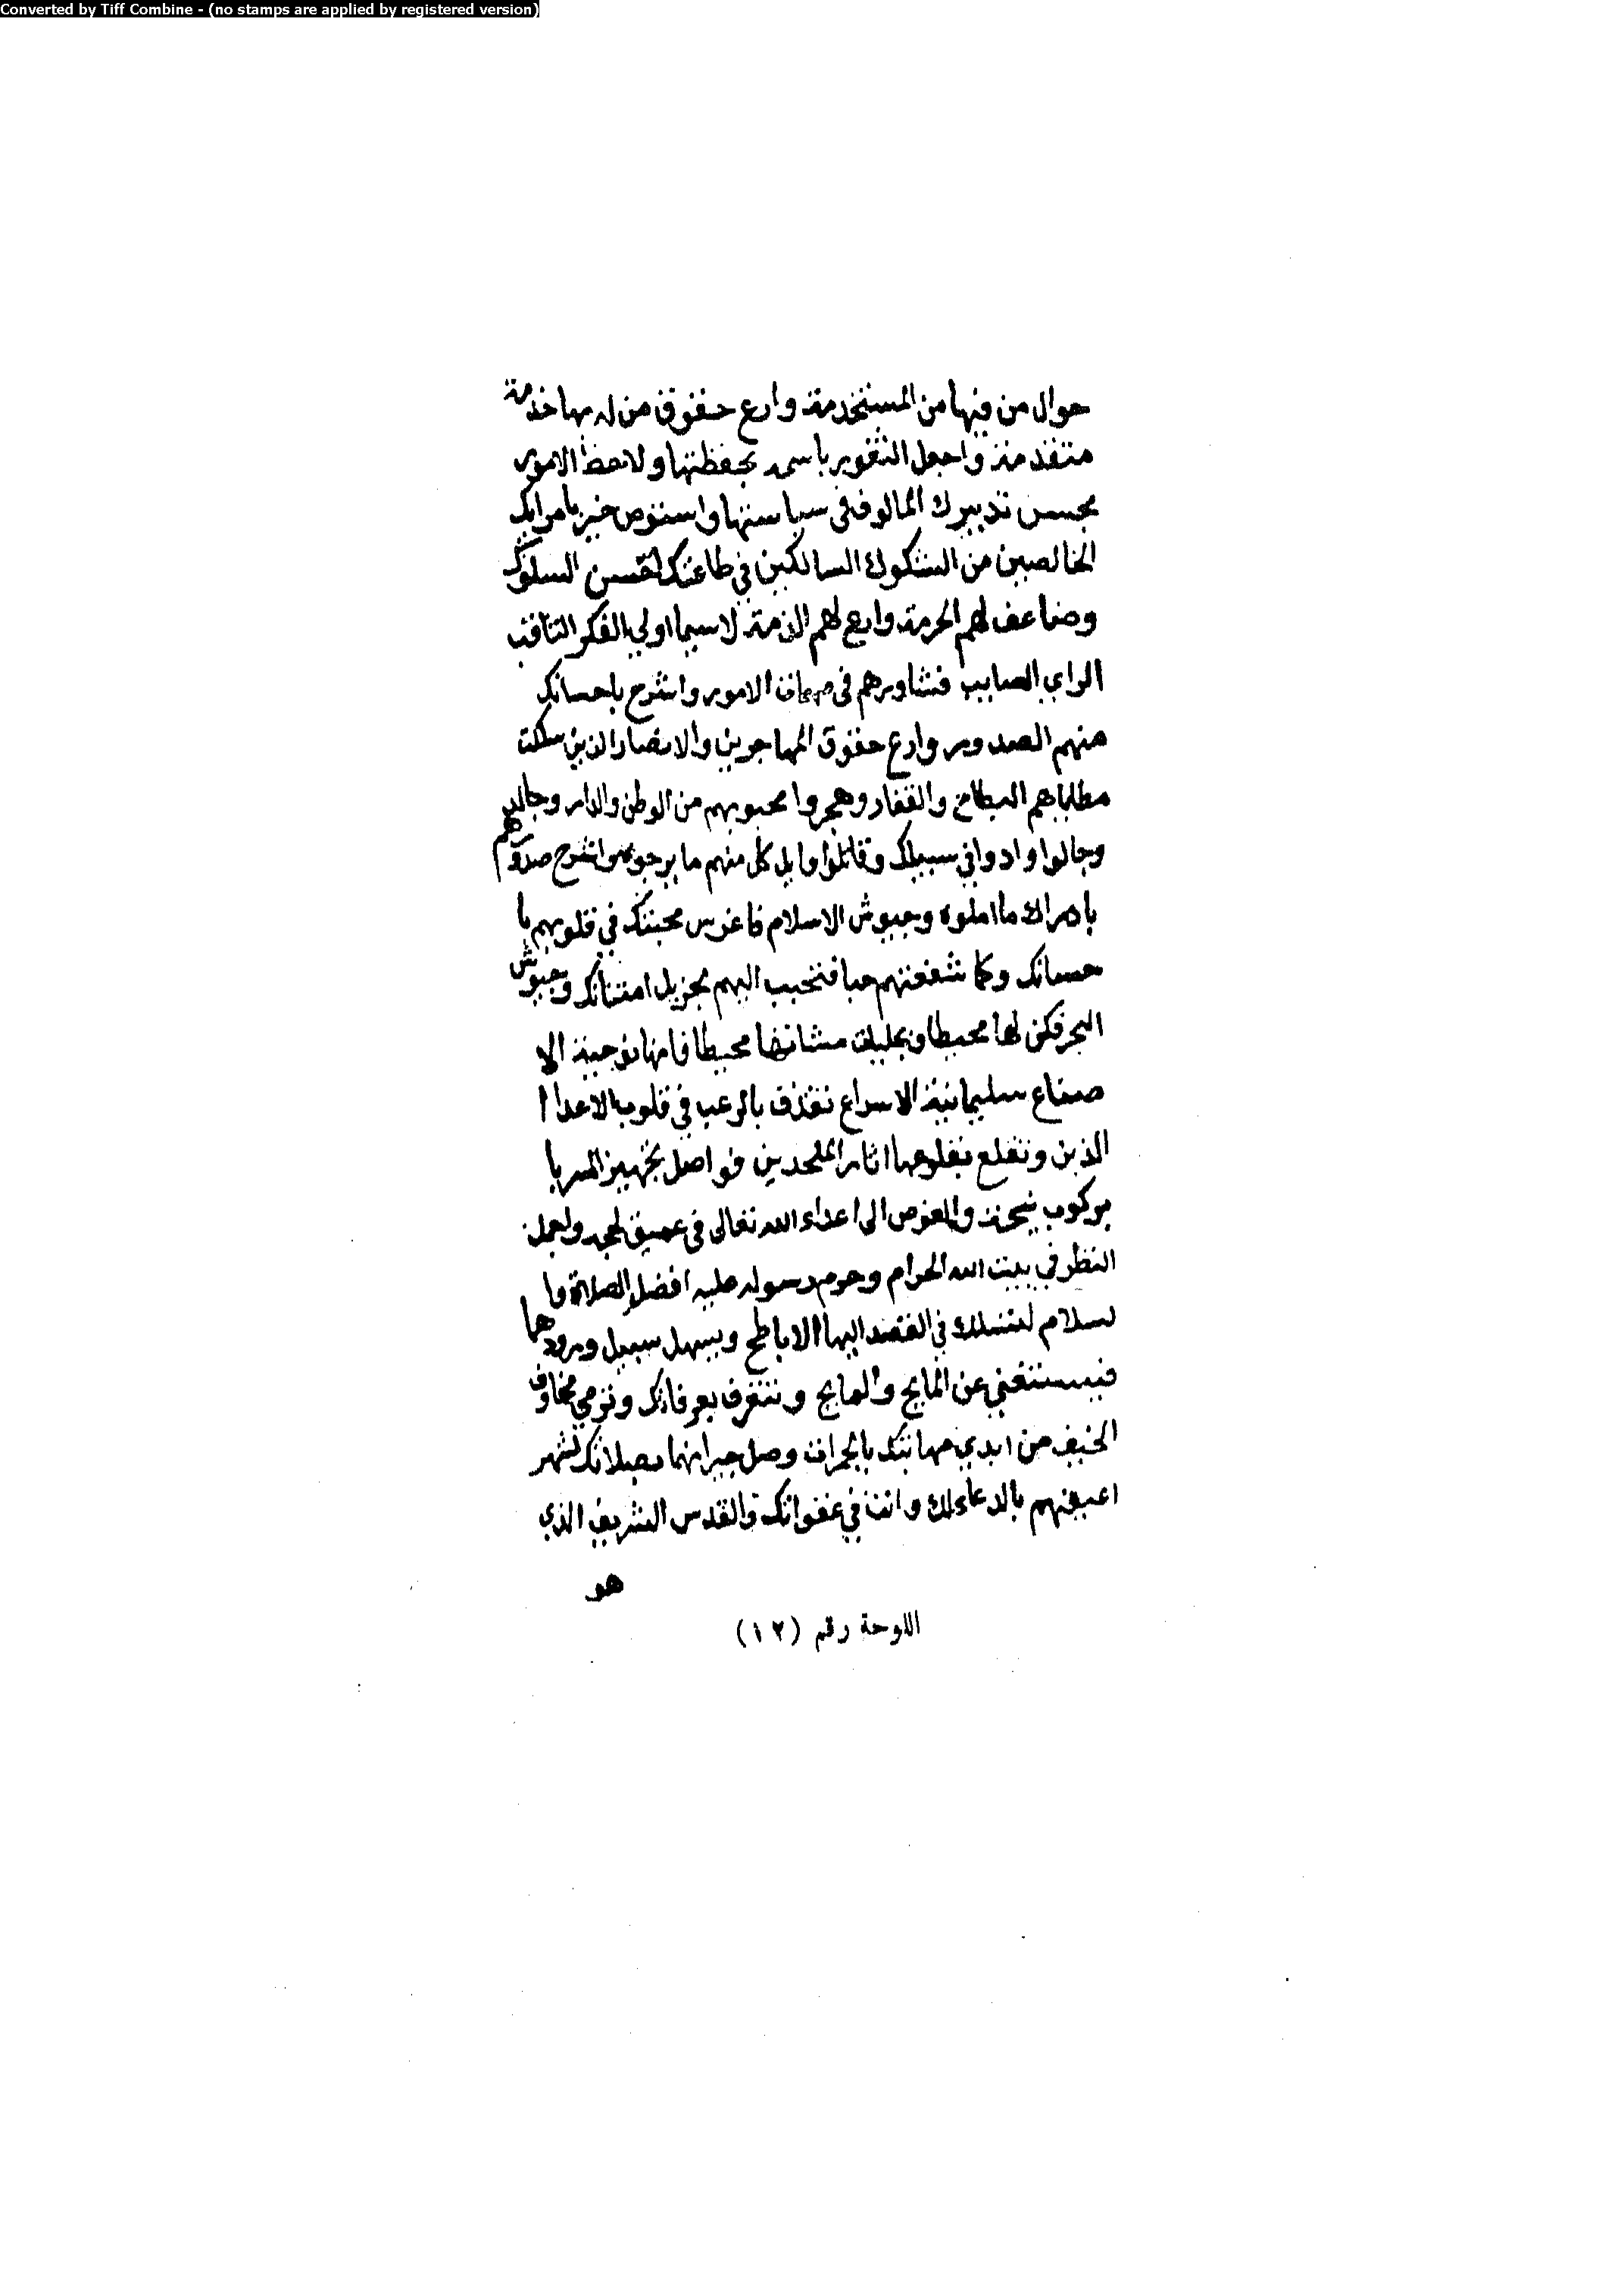 Converted by Tiff Combine - (no stamps are applied by registered version)
حوال من فيها من المستخدمة وارع حقوق من له بها خدمة
متقدمة واجعل الثغور باسمه بحفظتها ولاحظ الامور
بحسن تدبيرك المالوف في سياستها واستوص خيرا بامرايك
الخالصين من الشكوك السالكين في طاعتك احسن السلوك
وضاعف لهم الحرمة وارع لهم الذمة لا سيما اولي الفكر الثاقب
الراي الصايب فشاورهم في مهمات الامور واشرح باحسانك
منهم الصدور وارع حقوق المهاجرين والانصار الذين سلكت
مطاياهم البطاح والقفار وهجروا محبوبهم من الوطن والدار وجالدوا
وجالوا وادوا في سبيلك وقاتلوا وابل كل منهم ما يرجوه واشرح صدورهم
بادراك ما املوه وجيوش الاسلام فاغرس محبتك في قلوبهم با
حسانك وكما شغفتهم حبا فتحبب اليهم بجزيل امتنانك وجيوش
البحر فكن لها محيطا وبجليل مشانها محيطا فانها نوحية الا
صناع سليمانية الاسراع تقذف بالرعب في قلوب الاعدا ا
الذين وتقلع بقلوعها اثار الملحدين فواصل تجهيز السرايا
بركوب ثبجه والغوص الى اعداء الله تعالى في عميق لججه واجمل
النظر في بيت الله الحرام وحرم رسوله عليه افضل الصلاة وا
لسلام لتسلك في القصد اليها الاباطح ويسهل سبيل ورودهما
فيستغني عن المايح والمايح وتتعرف بعرفانك وترمي مخاوف
الخيف من ايدي مهابتك بالجمرات وصل جيرانهما بصلاتك لتشهر
اعينهم بالدعاء لك وانت في غفواتك والقدس الشريف الذي
هو
اللوحة رقم (١٢)